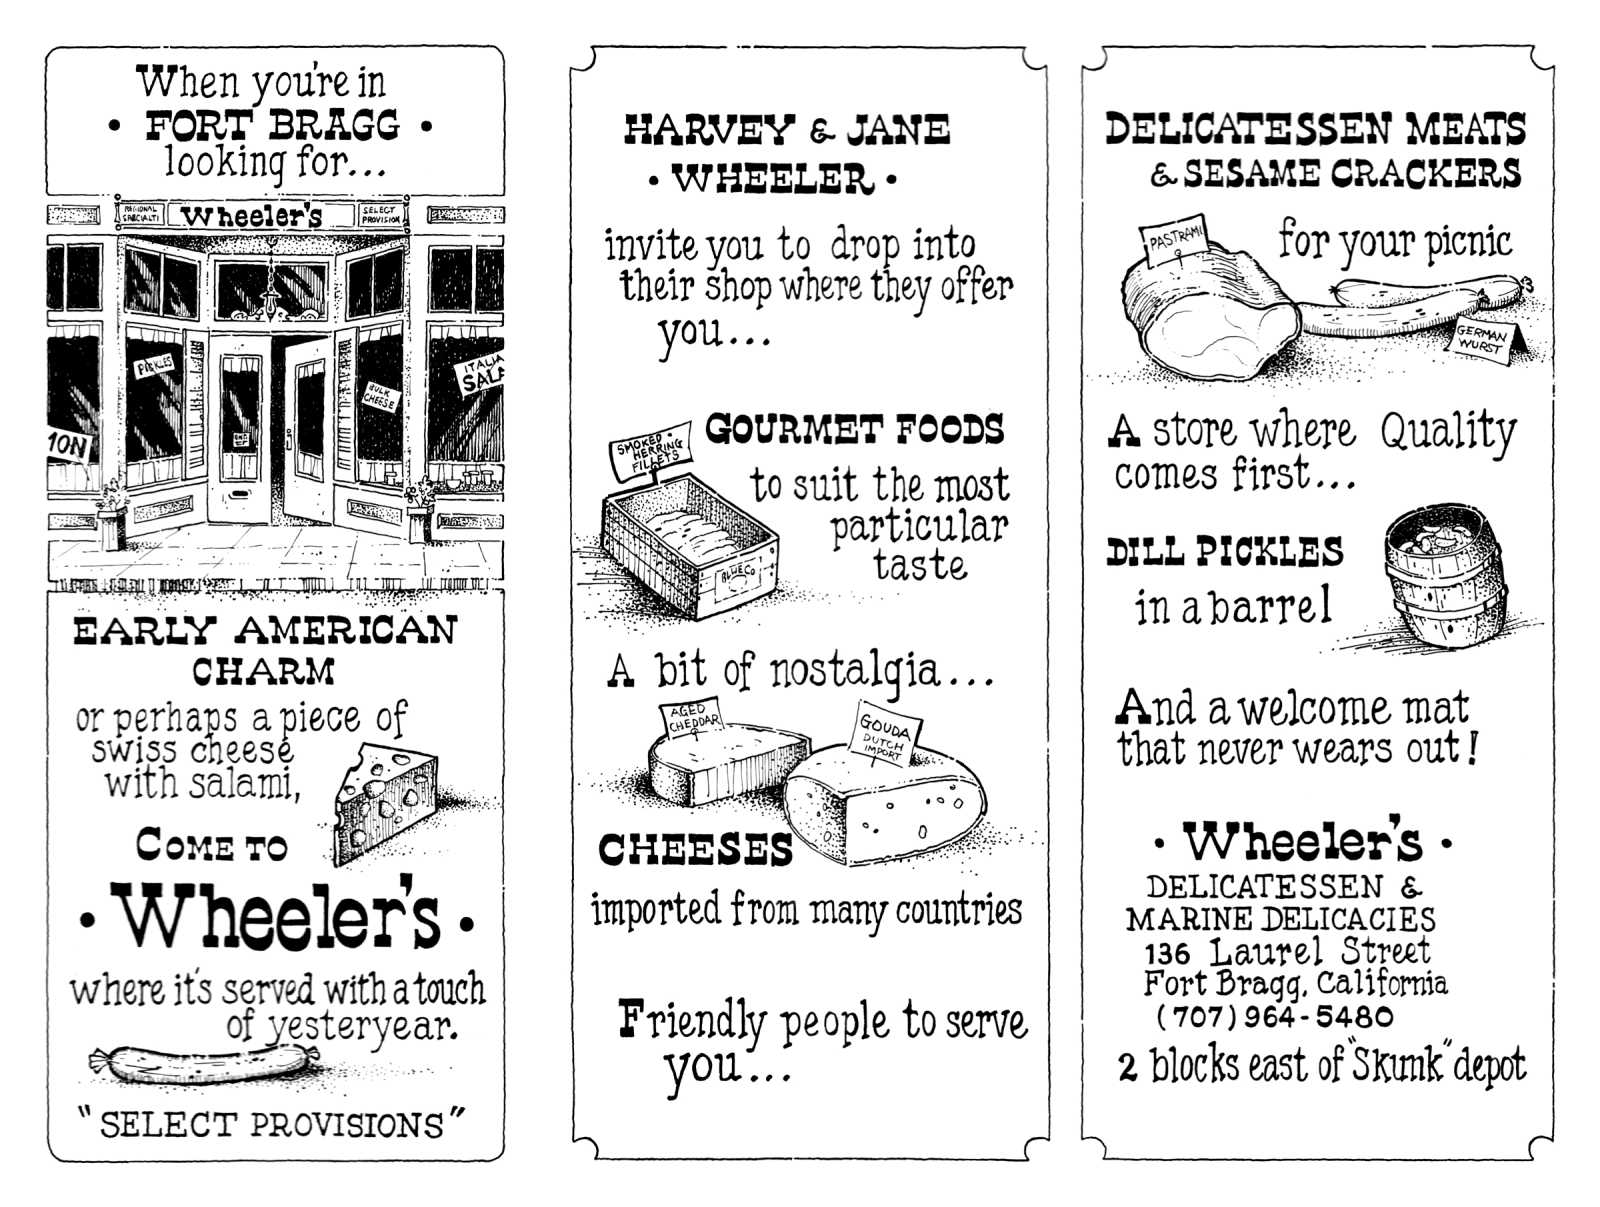 When you're in
• FORT BRAGG •
looking for...
REGIONAL
SPECIALTI
Wheeler's
SELECT
PROVISION
PICKLES
BULK
CHEESE
ITALIA
SALA
ION
EARLY AMERICAN
CHARM
or perhaps a piece of
swiss cheese
with salami,
COME TO
• Wheeler's •
where it's served with a touch
of yesteryear.
"SELECT PROVISIONS"
HARVEY & JANE
• WHEELER •
invite you to drop into
their shop where they offer
you...
SMOKED
HERRING
FILLETS
GOURMET FOODS
to suit the most
particular
taste
BLUE Co
A bit of nostalgia...
AGED
CHEDDAR
GOUDA
DUTCH
IMPORT
CHEESES
imported from many countries
Friendly people to serve
you...
DELICATESSEN MEATS
& SESAME CRACKERS
PASTRAMI
for your picnic
GERMAN
WURST
A store where Quality
comes first...
DILL PICKLES
in a barrel
And a welcome mat
that never wears out!
• Wheeler's •
DELICATESSEN &
MARINE DELICACIES
136 Laurel Street
Fort Bragg, California
(707) 964-5480
2 blocks east of "Skunk" depot